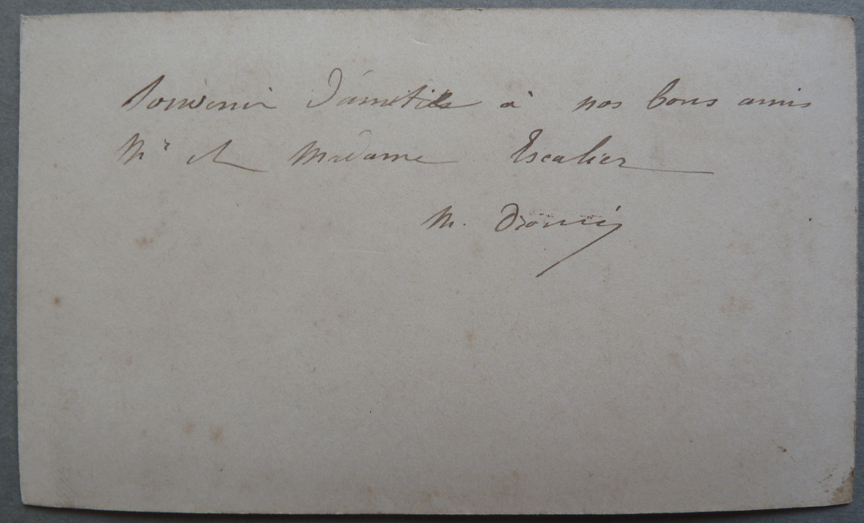 Souvenir d'amitié à nos bons amis
Mr et Madame Escalier
M.